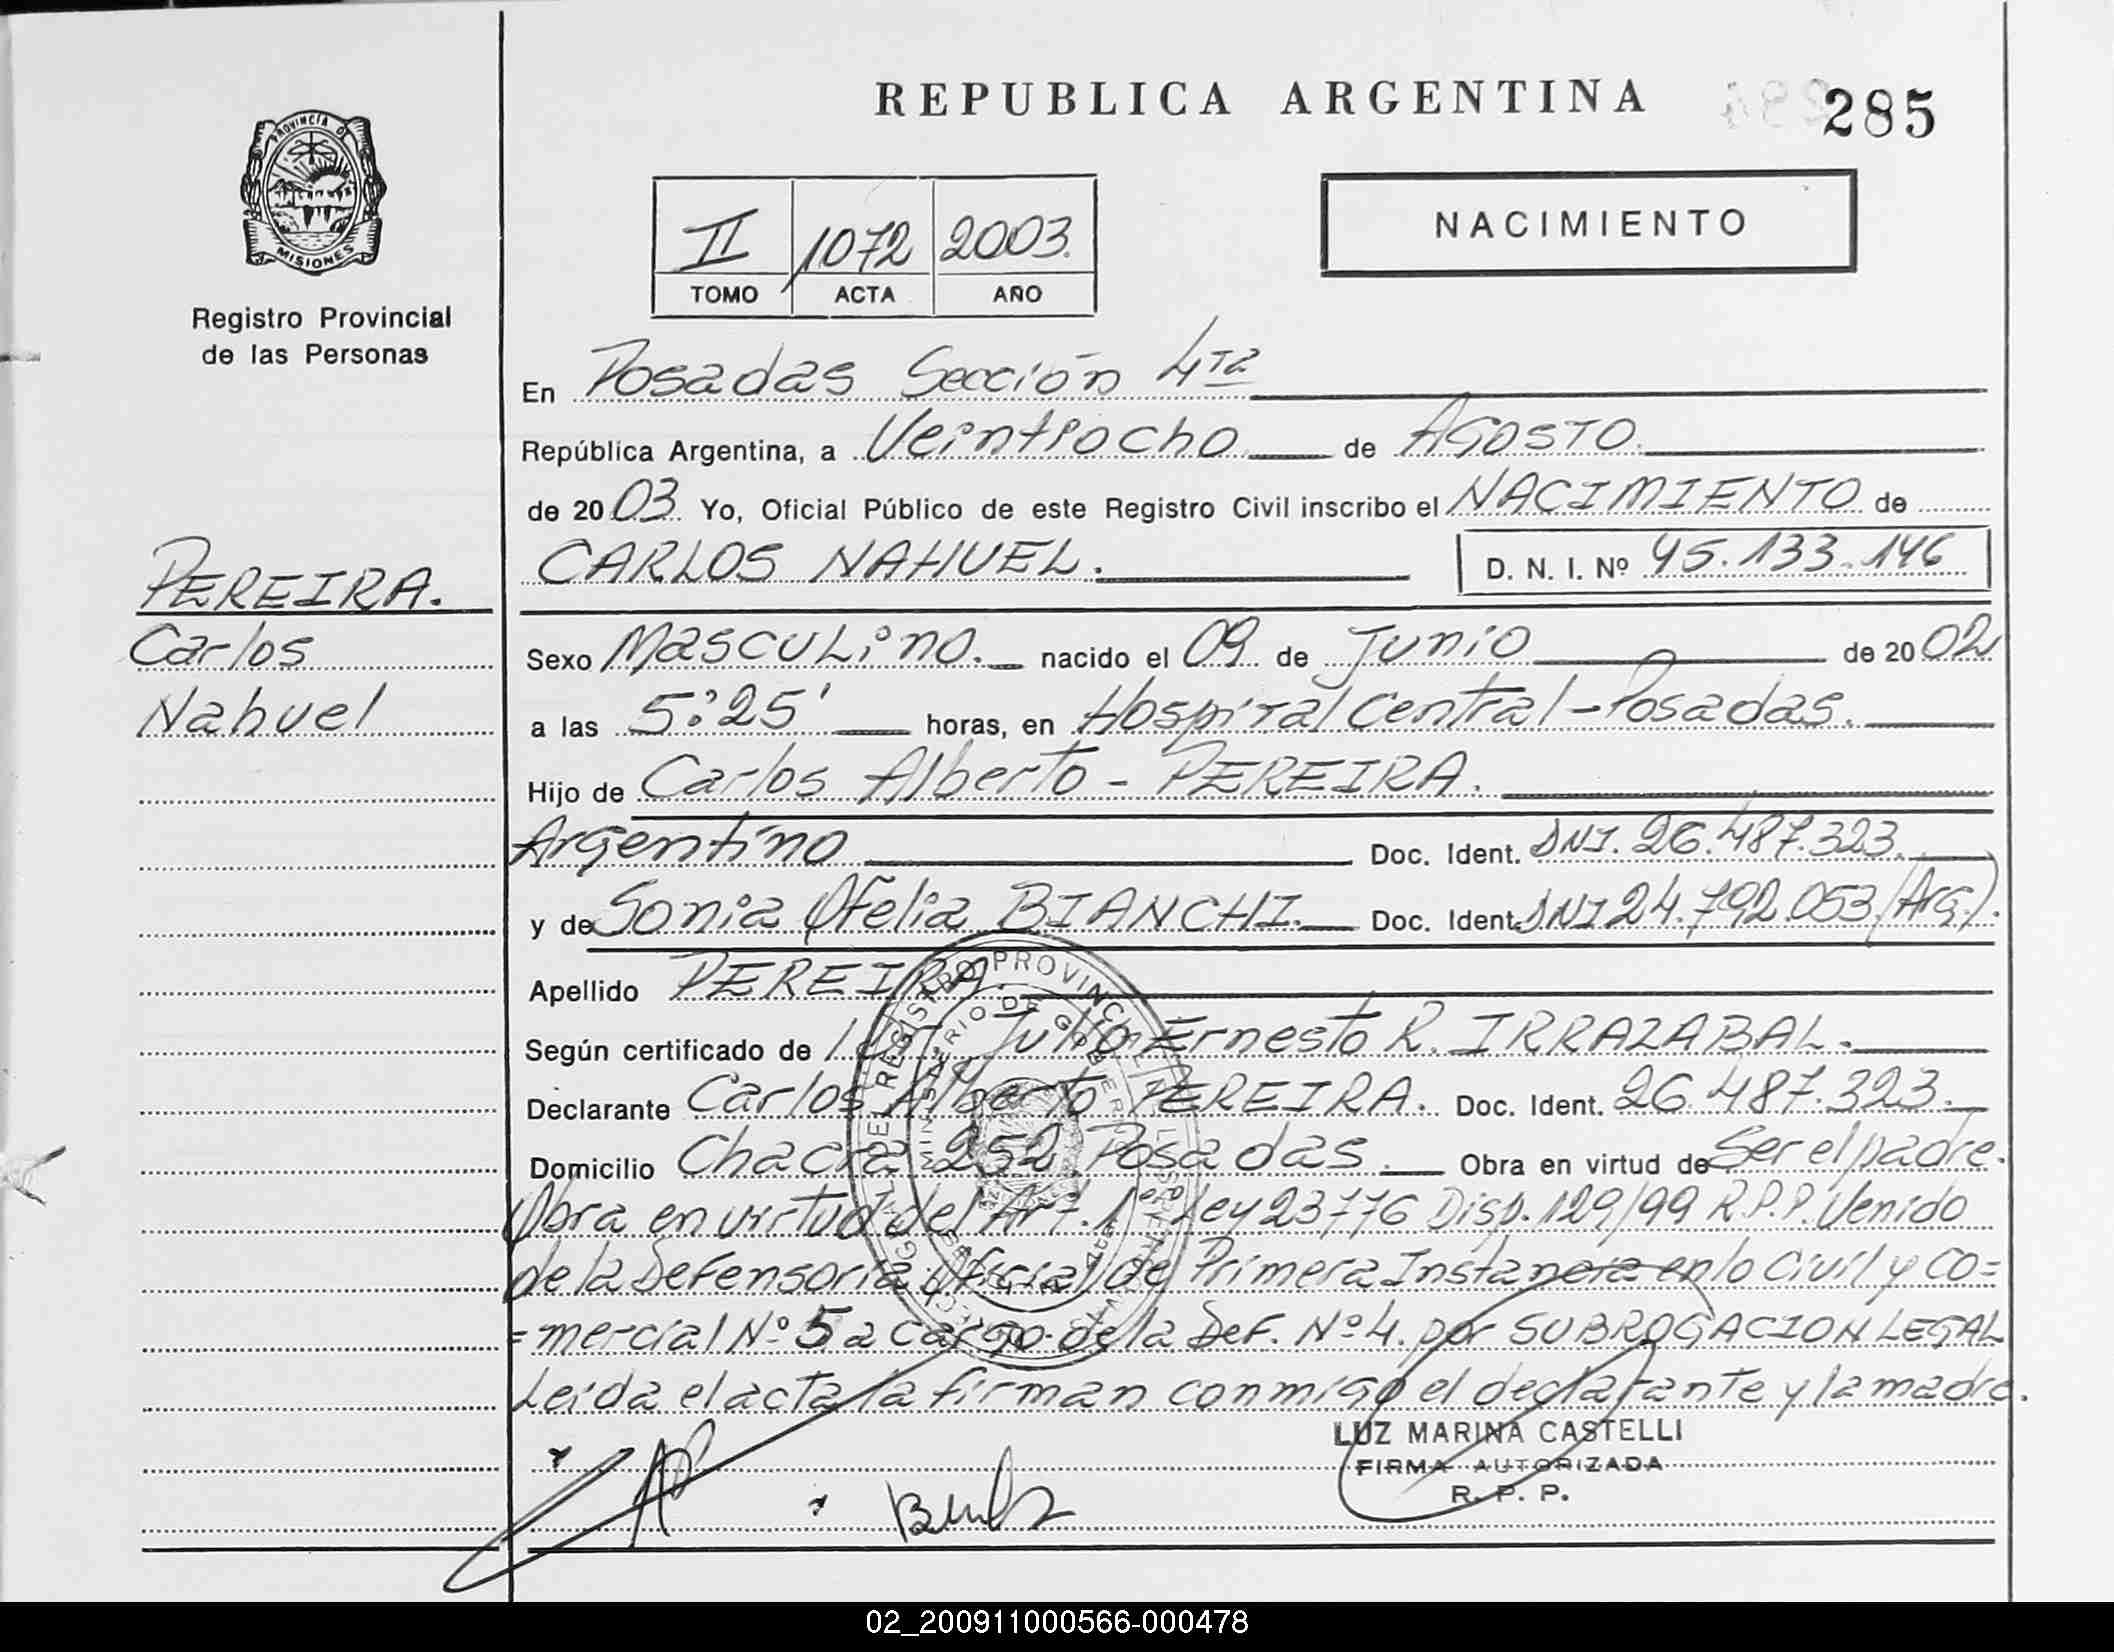 REPUBLICA ARGENTINA 285
PROVINCIA DE
MISIONES
Registro Provincial
de las Personas
NACIMIENTO
II 1072 2003.
TOMO ACTA AÑO
En Posadas Sección 4ta
República Argentina, a Veintiocho de AGOSTO.
de 2003. Yo, Oficial Público de este Registro Civil inscribo el NACIMIENTO de
CARLOS NAHUEL. D. N. I. Nº 45.133.146
PEREIRA.
Carlos
Nahuel
Sexo Masculino. nacido el 09 de Junio de 2002
a las 5:25' horas, en Hospital Central-Posadas.
Hijo de Carlos Alberto - PEREIRA.
Argentino Doc. Ident. DNI. 26.487.323.
y de Sonia Ofelia BIANCHI. Doc. Ident. DNI 24.792.053 (Arg.).
Apellido PEREIRA.
Según certificado de Julio Ernesto R. IRRAZABAL.
Declarante Carlos Alberto PEREIRA. Doc. Ident. 26.487.323.
Domicilio Chacra 252 Posadas. Obra en virtud de Ser el padre.
Obra en virtud del Art. 1º Ley 23776 Disp. 129/99 R.P.P. Venido
de la Defensoría Oficial de Primera Instancia en lo Civil y Co=
=mercial Nº 5 a cargo de la Def. Nº 4. por SUBROGACION LEGAL
Leída el acta la firman conmigo el declarante y la madre.
LUZ MARINA CASTELLI
FIRMA AUTORIZADA
R. P. P.
02_200911000566-000478